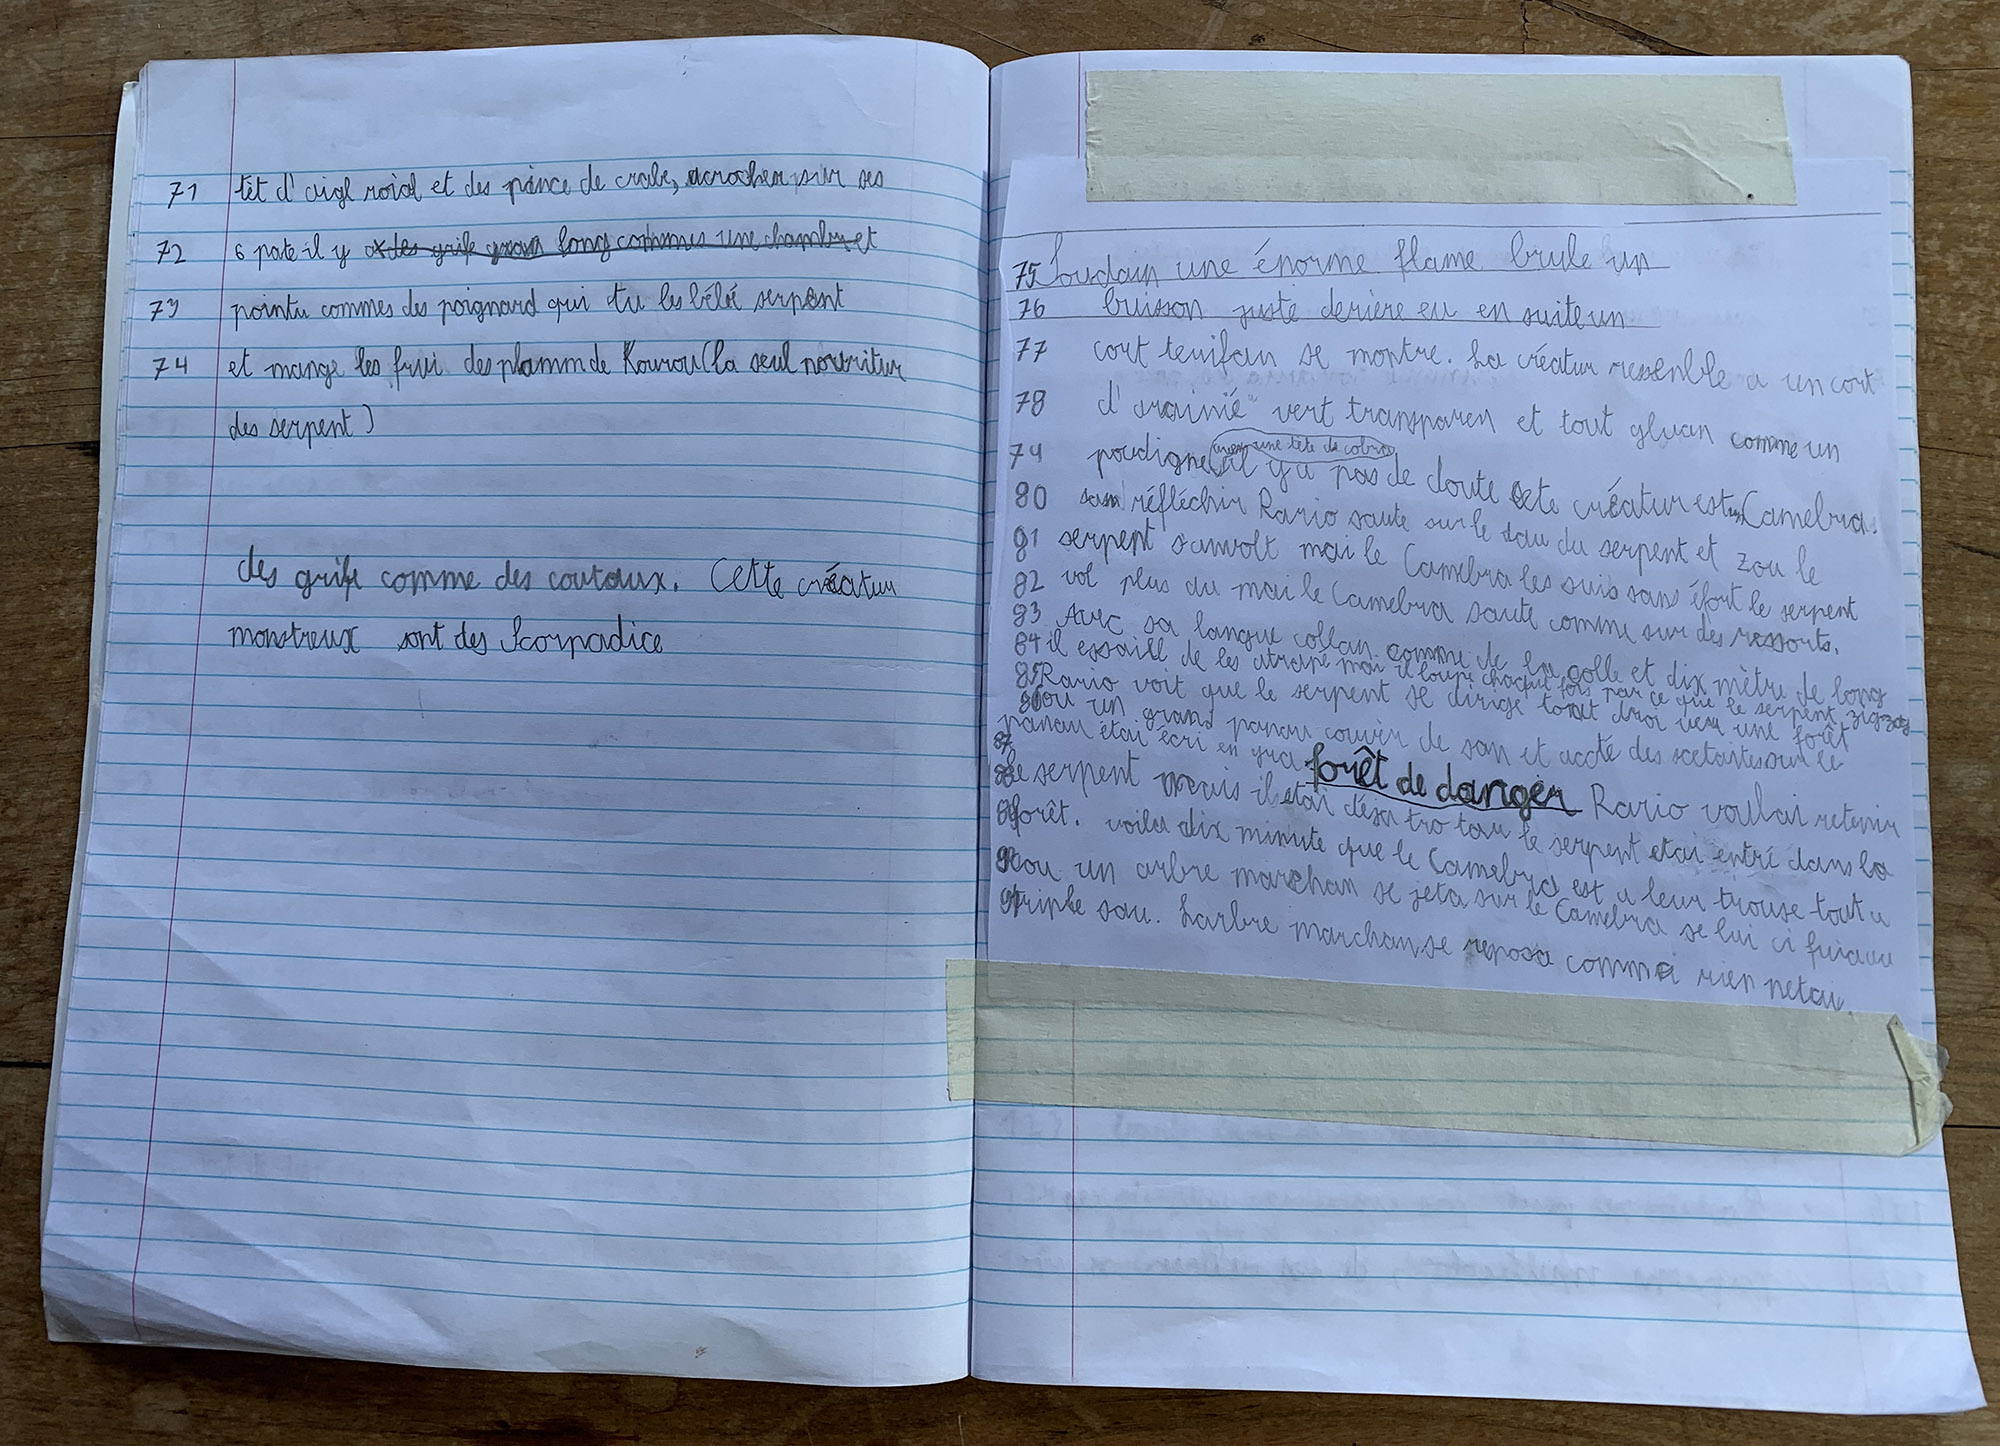 71 têt d'aigl roial et des pince de crabe, acrocher sur ses
72 6 pate il y a des grife long commes une chambre et
73 pointu commes des poignard qui tu les bébé serpent
74 et mange les frui des plamm de Kourou (la seul nouritur
des serpent)
des grife comme des coutaux. Cette créatur
monstreux sont des Scorpadice
75 Soudain une énorme flame brule un
76 buisson juste derière eu en suite un
77 cort terifan se montre. La créatur resenble a un cort
78 d'arainié vert transparen et tout gluan comme un
avec une tête de cobra
79 poudigne il y a pas de doute cete créatur est un Camebra.
80 san réfléchir Rario saute sur le dau du serpent et zou le
81 serpent sanvolt mai le Camebra les suis sans éfort le serpent
82 vol plus du mai le Camebra saute comme sur des ressorts.
83 Avec sa langue collan comme de la colle et dix mètre de long
84 il essaill de les atrapé mai il loupe chaque fois par ce que le serpent zigzag
85 Rario voit que le serpent se dirige tout droi vers une forêt
86 ou un grand panau couvèr de san et acoté des scelaites sur le
panau étai écri en gra forêt de danger Rario voulai retenir
87
88 le serpent mais il étai déja tro tau le serpent etai entré dans la
89 forêt. voila dix minute que le Camebra est a leur trouse tout a
90 cou un arbre marchan se jeta sur le Camebra se lui ci fuiau
91 triple sau. Larbre marchan se reposa comme rien netai